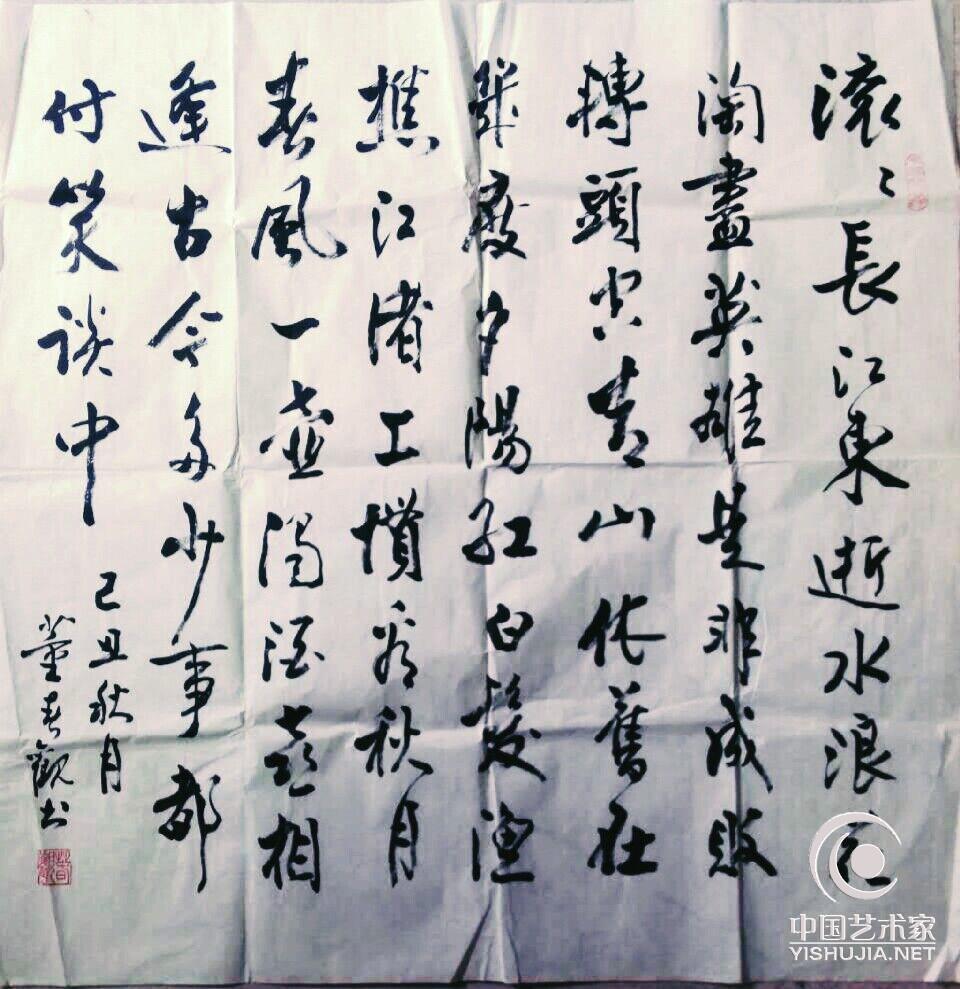 滚〻長江東逝水浪花
淘盡英雄是非成敗
轉頭空青山依舊在
幾度夕陽紅白髮漁
樵江渚上慣看秋月
春風一壺濁酒喜相
逢古今多少事都
付笑談中
己丑秋月
董春觀书
中国艺术家
YISHUJIA.NET